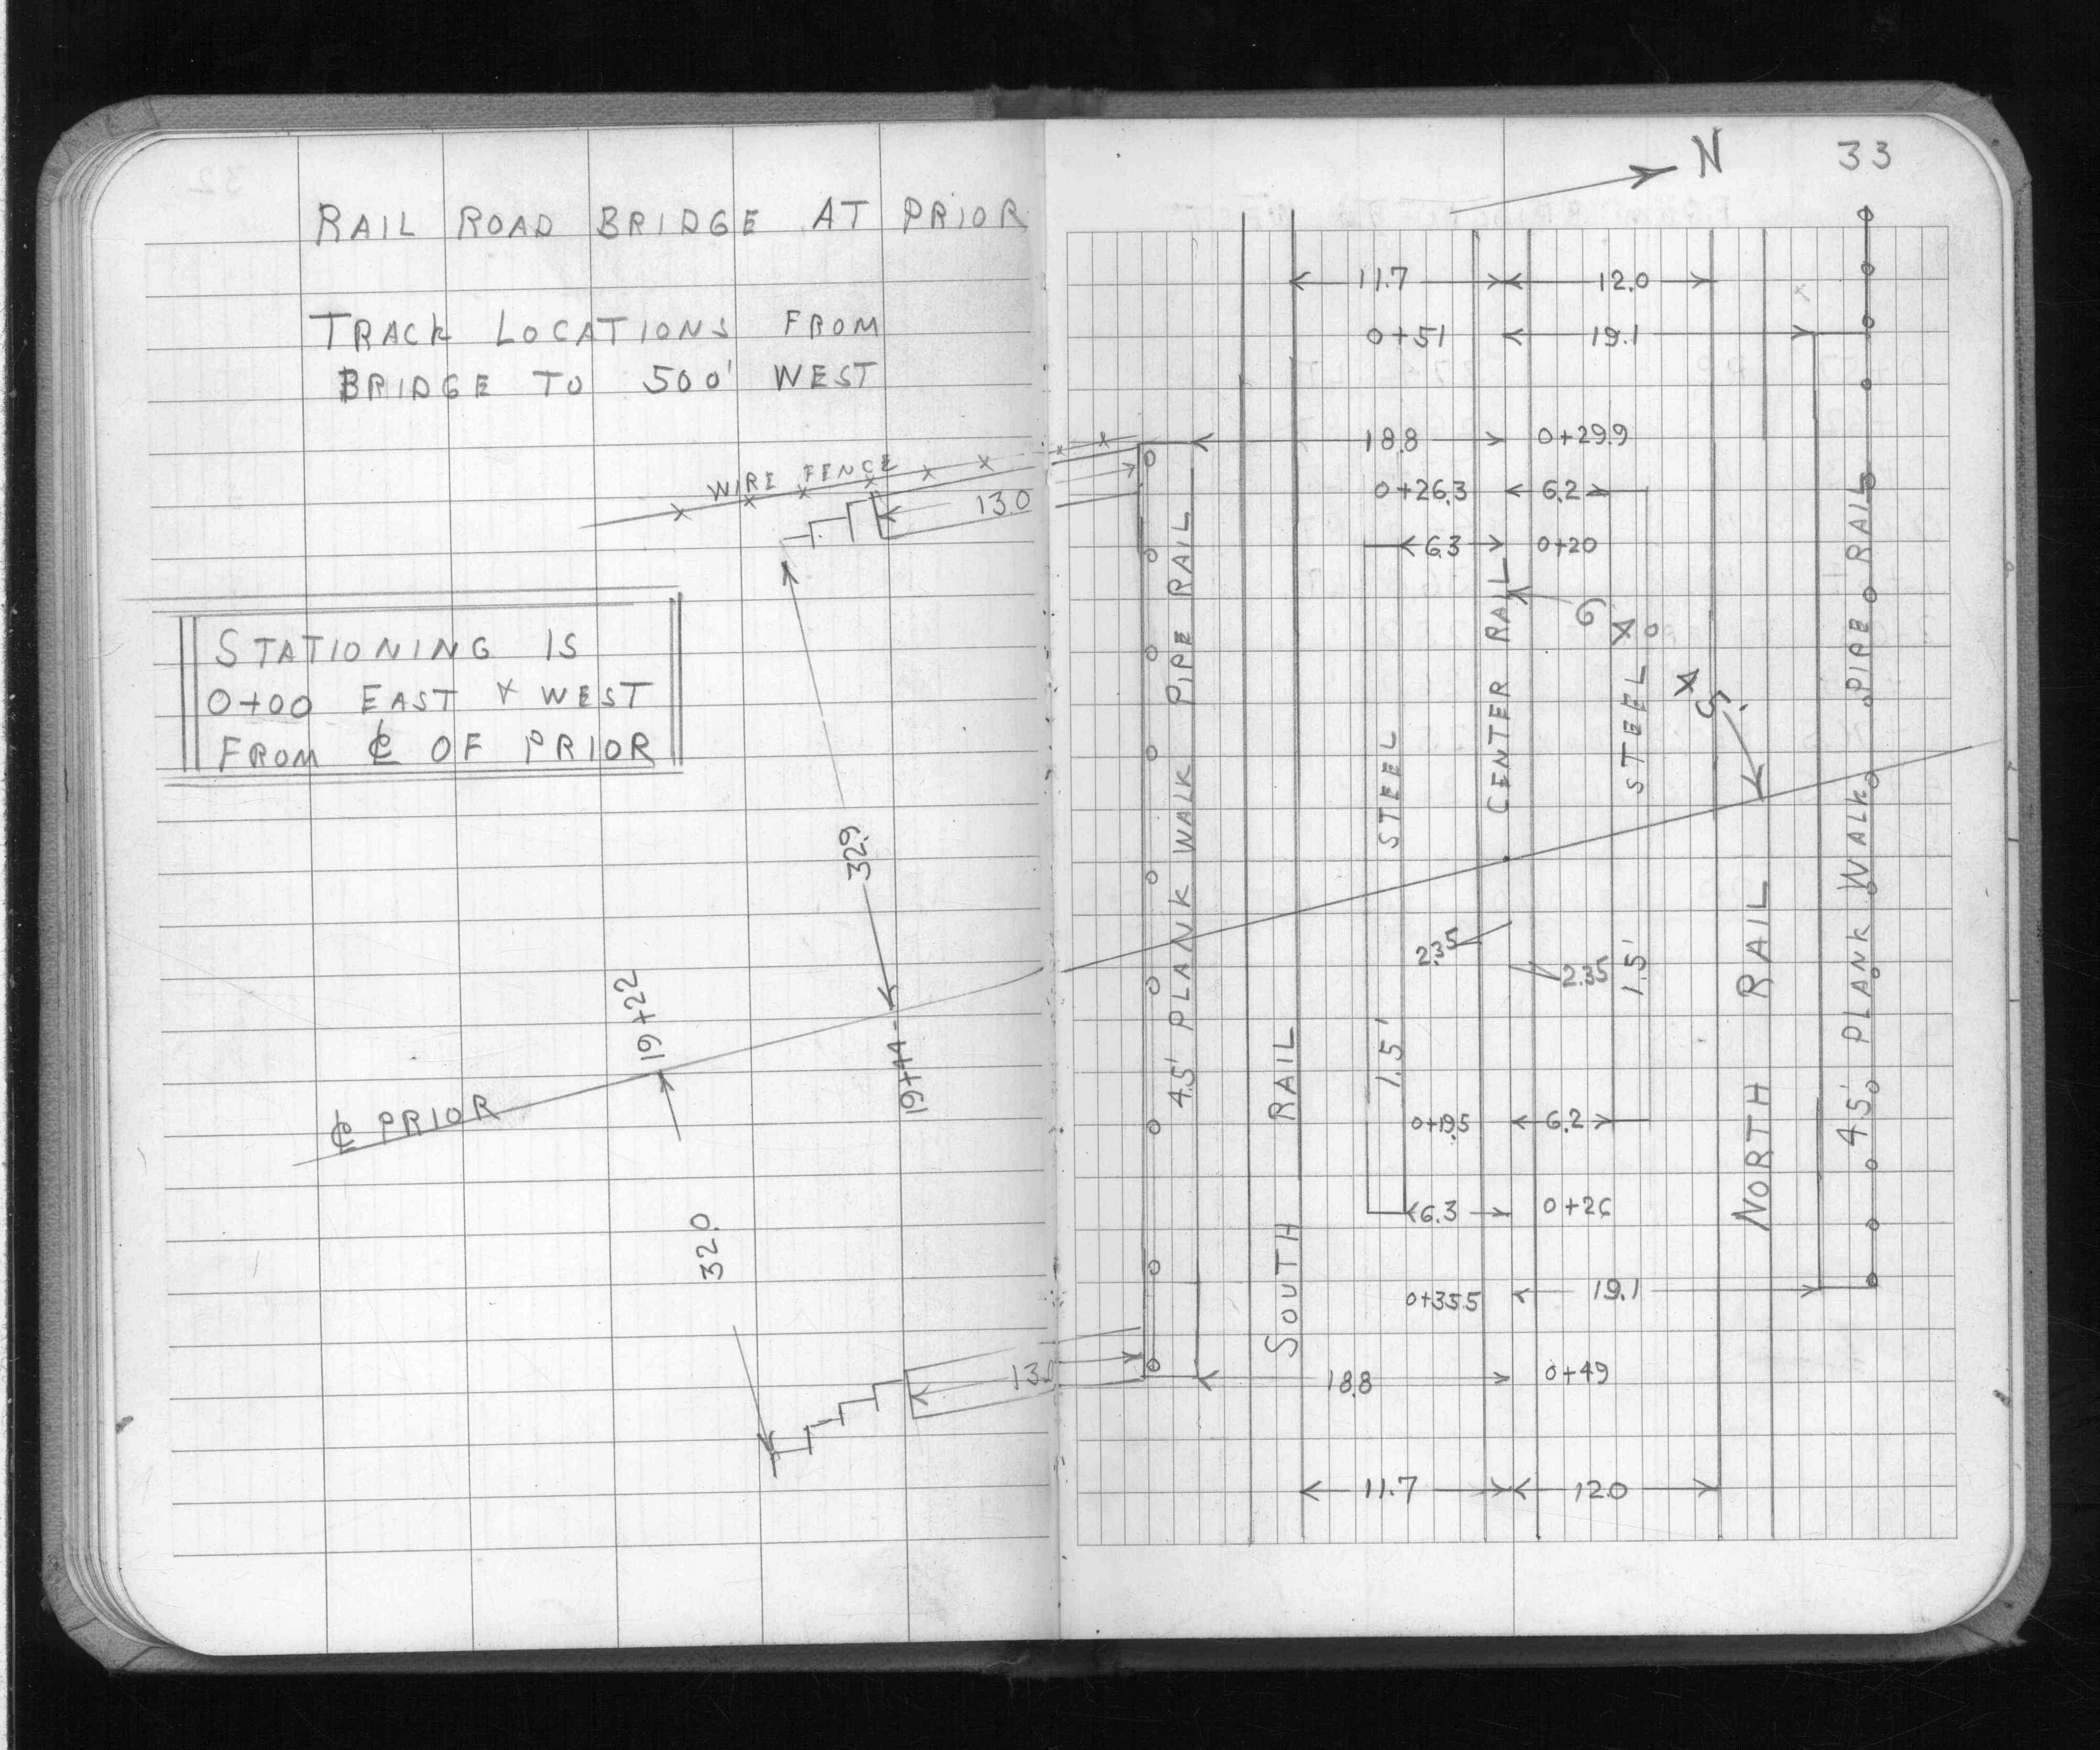 RAIL ROAD BRIDGE AT PRIOR
TRACK LOCATIONS FROM
BRIDGE TO 500' WEST
WIRE FENCE
13.0
STATIONING IS
0+00 EAST & WEST
FROM ℄ OF PRIOR
32.9
19+22
19+44
℄ PRIOR
32.0
13.0
N
33
11.7
12.0
0+51
19.1
18.8
0+29.9
0+26.3
6.2
6.3
0+20
4.5' PLANK WALK PIPE RAIL
SOUTH RAIL
STEEL
1.5'
CENTER RAIL
STEEL
1.5'
NORTH RAIL
4.5' PLANK WALK PIPE RAIL
2.35
2.35
0+19.5
6.2
6.3
0+26
0+35.5
19.1
18.8
0+49
11.7
12.0